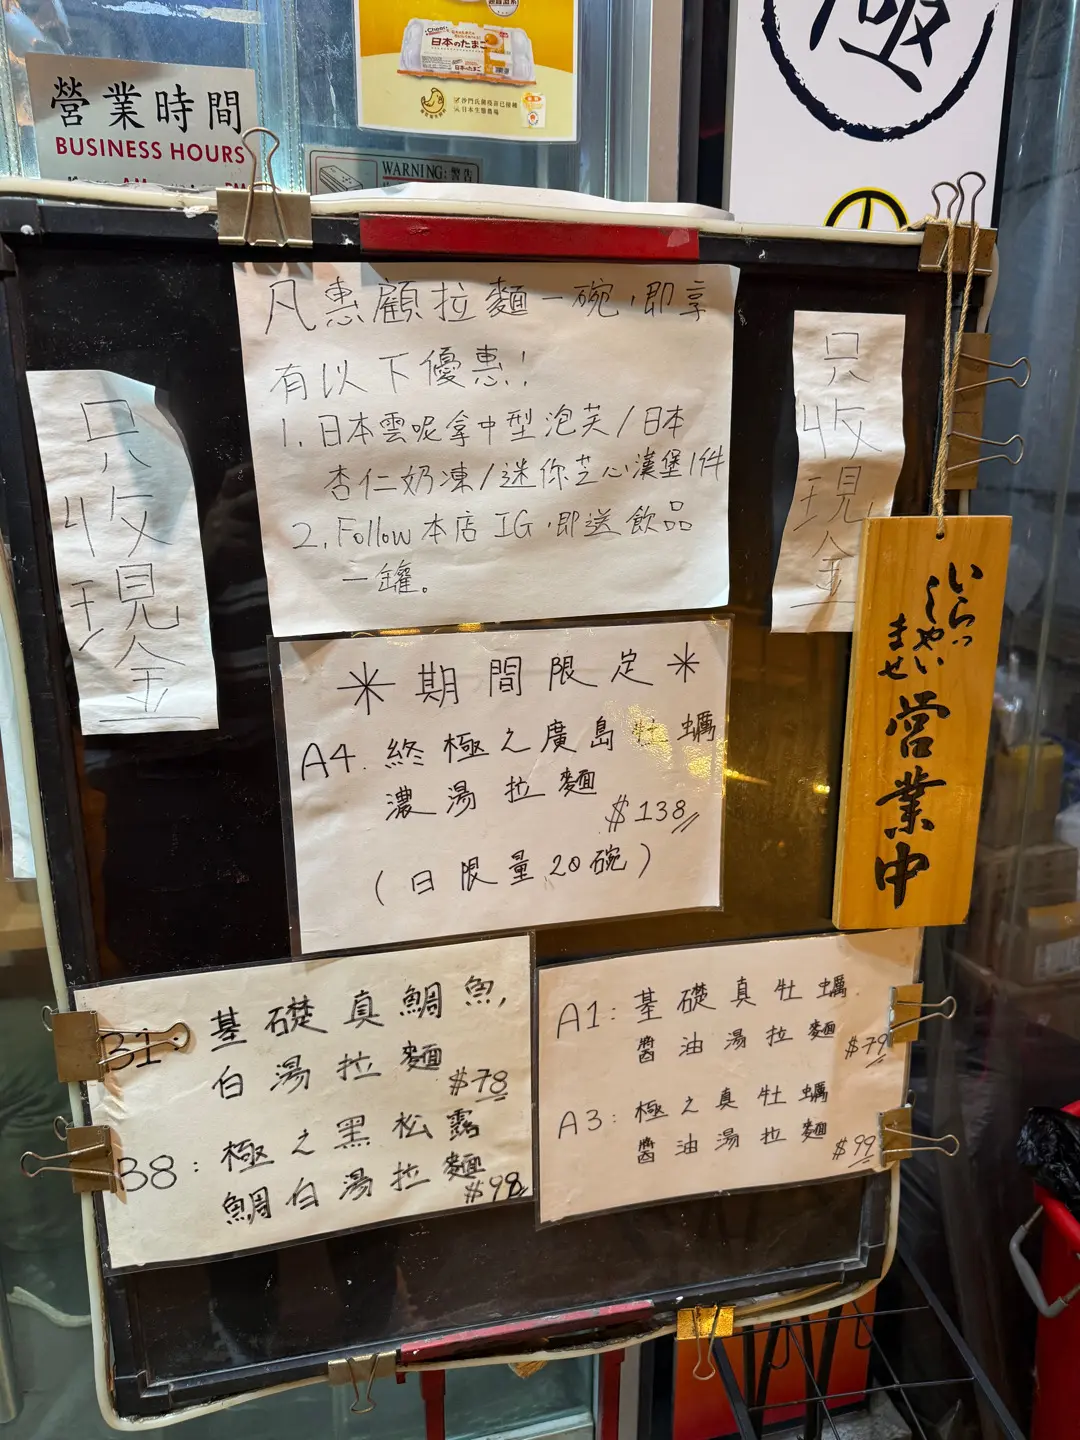 Cheer
日本のたまご
沙門氏菌疫苗已接種
日本生醫農場
極
營業時間
BUSINESS HOURS
WARNING: 警告
凡惠顧拉麵一碗，即享
有以下優惠！
1. 日本雲呢拿中型泡芙/日本
杏仁奶凍/迷你芝心漢堡1件
2. Follow本店 IG，即送飲品
一罐。
只收現金
只收現金
いらっ
しゃい
ませ
営業中
＊期間限定＊
A4. 終極之廣島牡蠣
濃湯拉麵
$138
(日限量20碗)
B1: 基礎真鯛魚,
白湯拉麵
$78
B8: 極之黑松露
鯛白湯拉麵
$98
A1: 基礎真牡蠣
醬油湯拉麵
$79
A3: 極之真牡蠣
醬油湯拉麵
$99